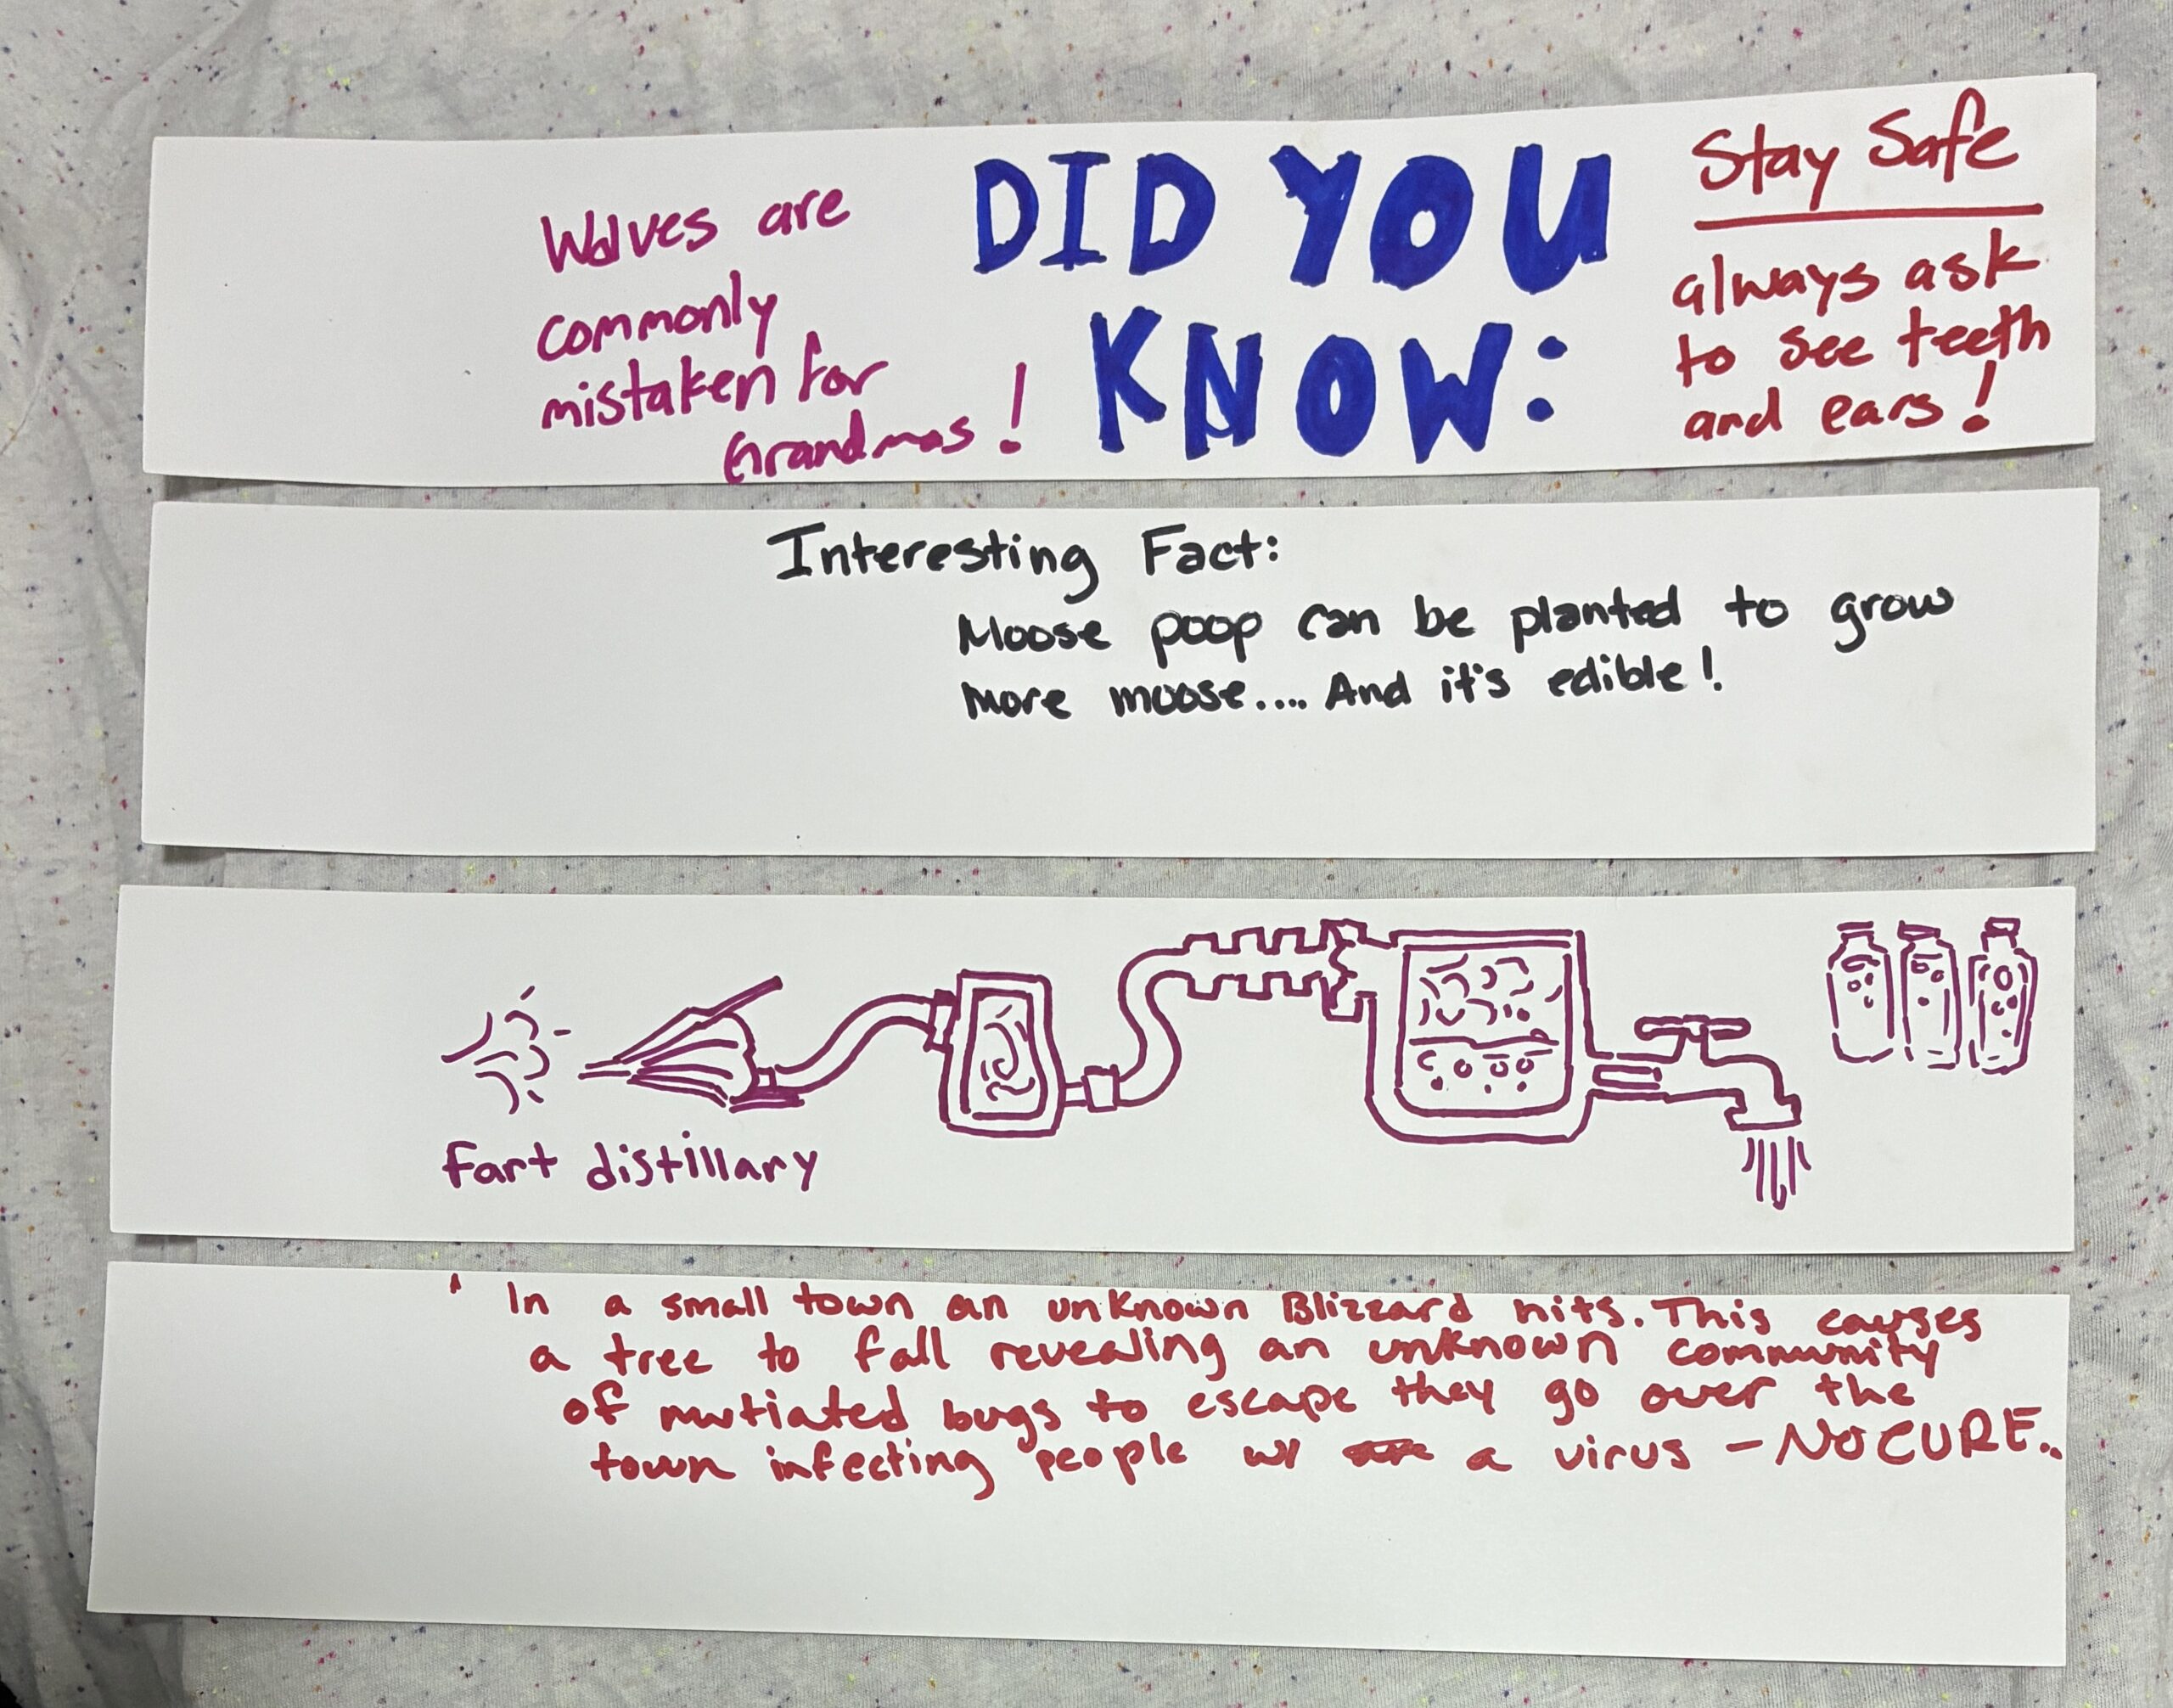 Wolves are
commonly
mistaken for
Grandmas!
DID YOU
KNOW:
Stay Safe
always ask
to see teeth
and ears!
Interesting Fact:
Moose poop can be planted to grow
more moose.... And it's edible!
fart distillary
In a small town an unknown Blizzard hits. This causes
a tree to fall revealing an unknown community
of mutiated bugs to escape they go over the
town infecting people w/ a virus - NO CURE..